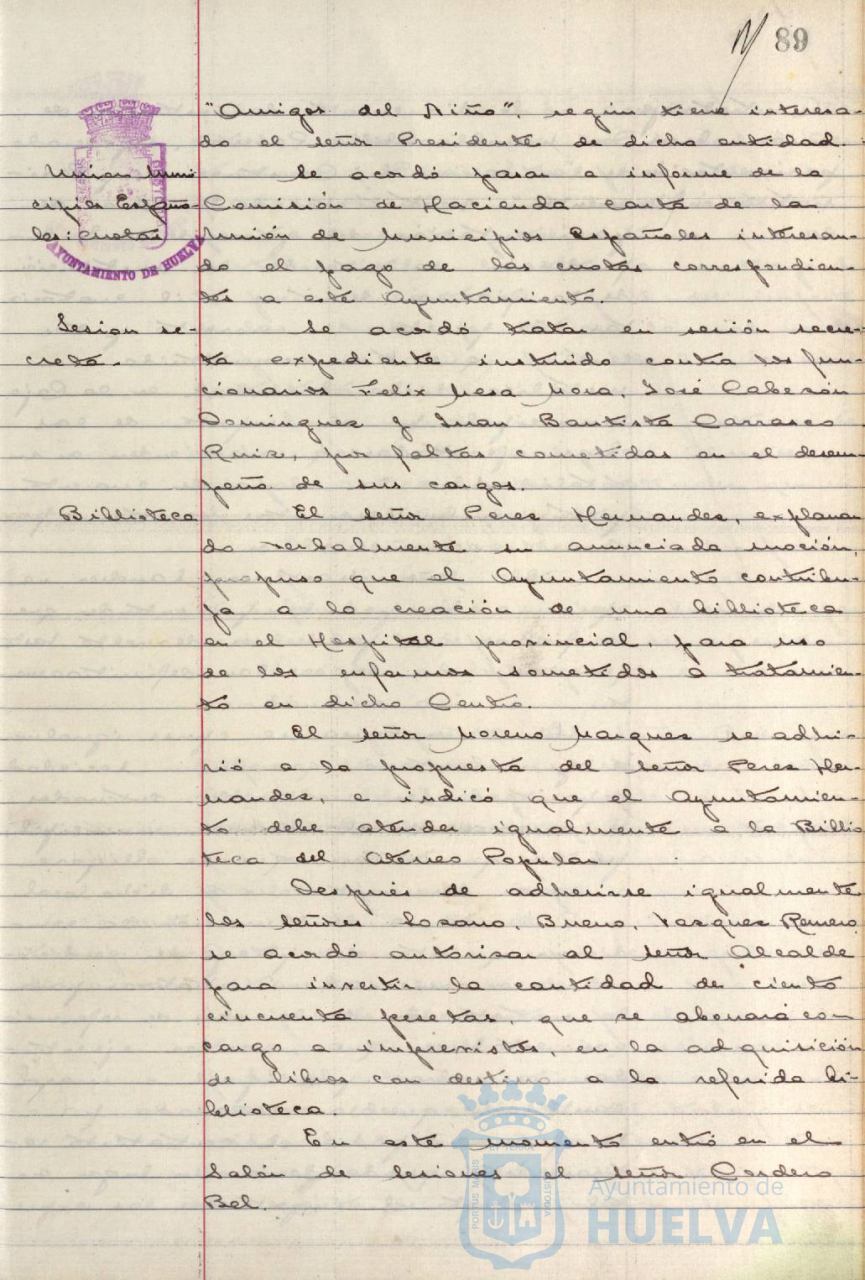 89
"Amigos del Niño", según tiene interesa-
do el señor Presidente de dicha entidad.
Union Muni
cipios Españo-
les: cuotas
Se acordó pasar a informe de la
Comisión de Hacienda carta de la
Unión de Municipios Españoles interesan-
do el pago de las cuotas correspondien-
tes a este Ayuntamiento.
AYUNTAMIENTO DE HUELVA
Sesion se-
creta.-
Se acordó tratar en sesión secre-
ta expediente instruido contra los fun-
cionarios Felix Mesa Mora, José Cabezón
Dominguez y Juan Bautista Carrasco
Ruiz, por faltas cometidas en el desem-
peño de sus cargos.
Biblioteca
El señor Perez Hernandez, explanan
do verbalmente su anunciada moción,
propuso que el Ayuntamiento contribu-
ya a la creación de una biblioteca
en el Hospital provincial, para uso
de los enfermos sometidos a tratamien-
to en dicho Centro.
El señor Moreno Marquez se adhi-
rió a la propuesta del señor Perez Her-
nandez, e indicó que el Ayuntamien-
to debe atender igualmente a la Biblio
teca del Ateneo Popular.
Después de adherirse igualmente
los señores Lozano, Bueno, Vazquez Romero,
se acordó autorizar al señor Alcalde
para invertir la cantidad de ciento
cincuenta pesetas, que se abonará con
cargo a imprevistos, en la adquisición
de libros con destino a la referida bi-
blioteca.
En este momento entró en el
Salón de sesiones el señor Cordero
Bel.
PORTUS MARIS ET TERRAE CUSTODIA
Ayuntamiento de
HUELVA